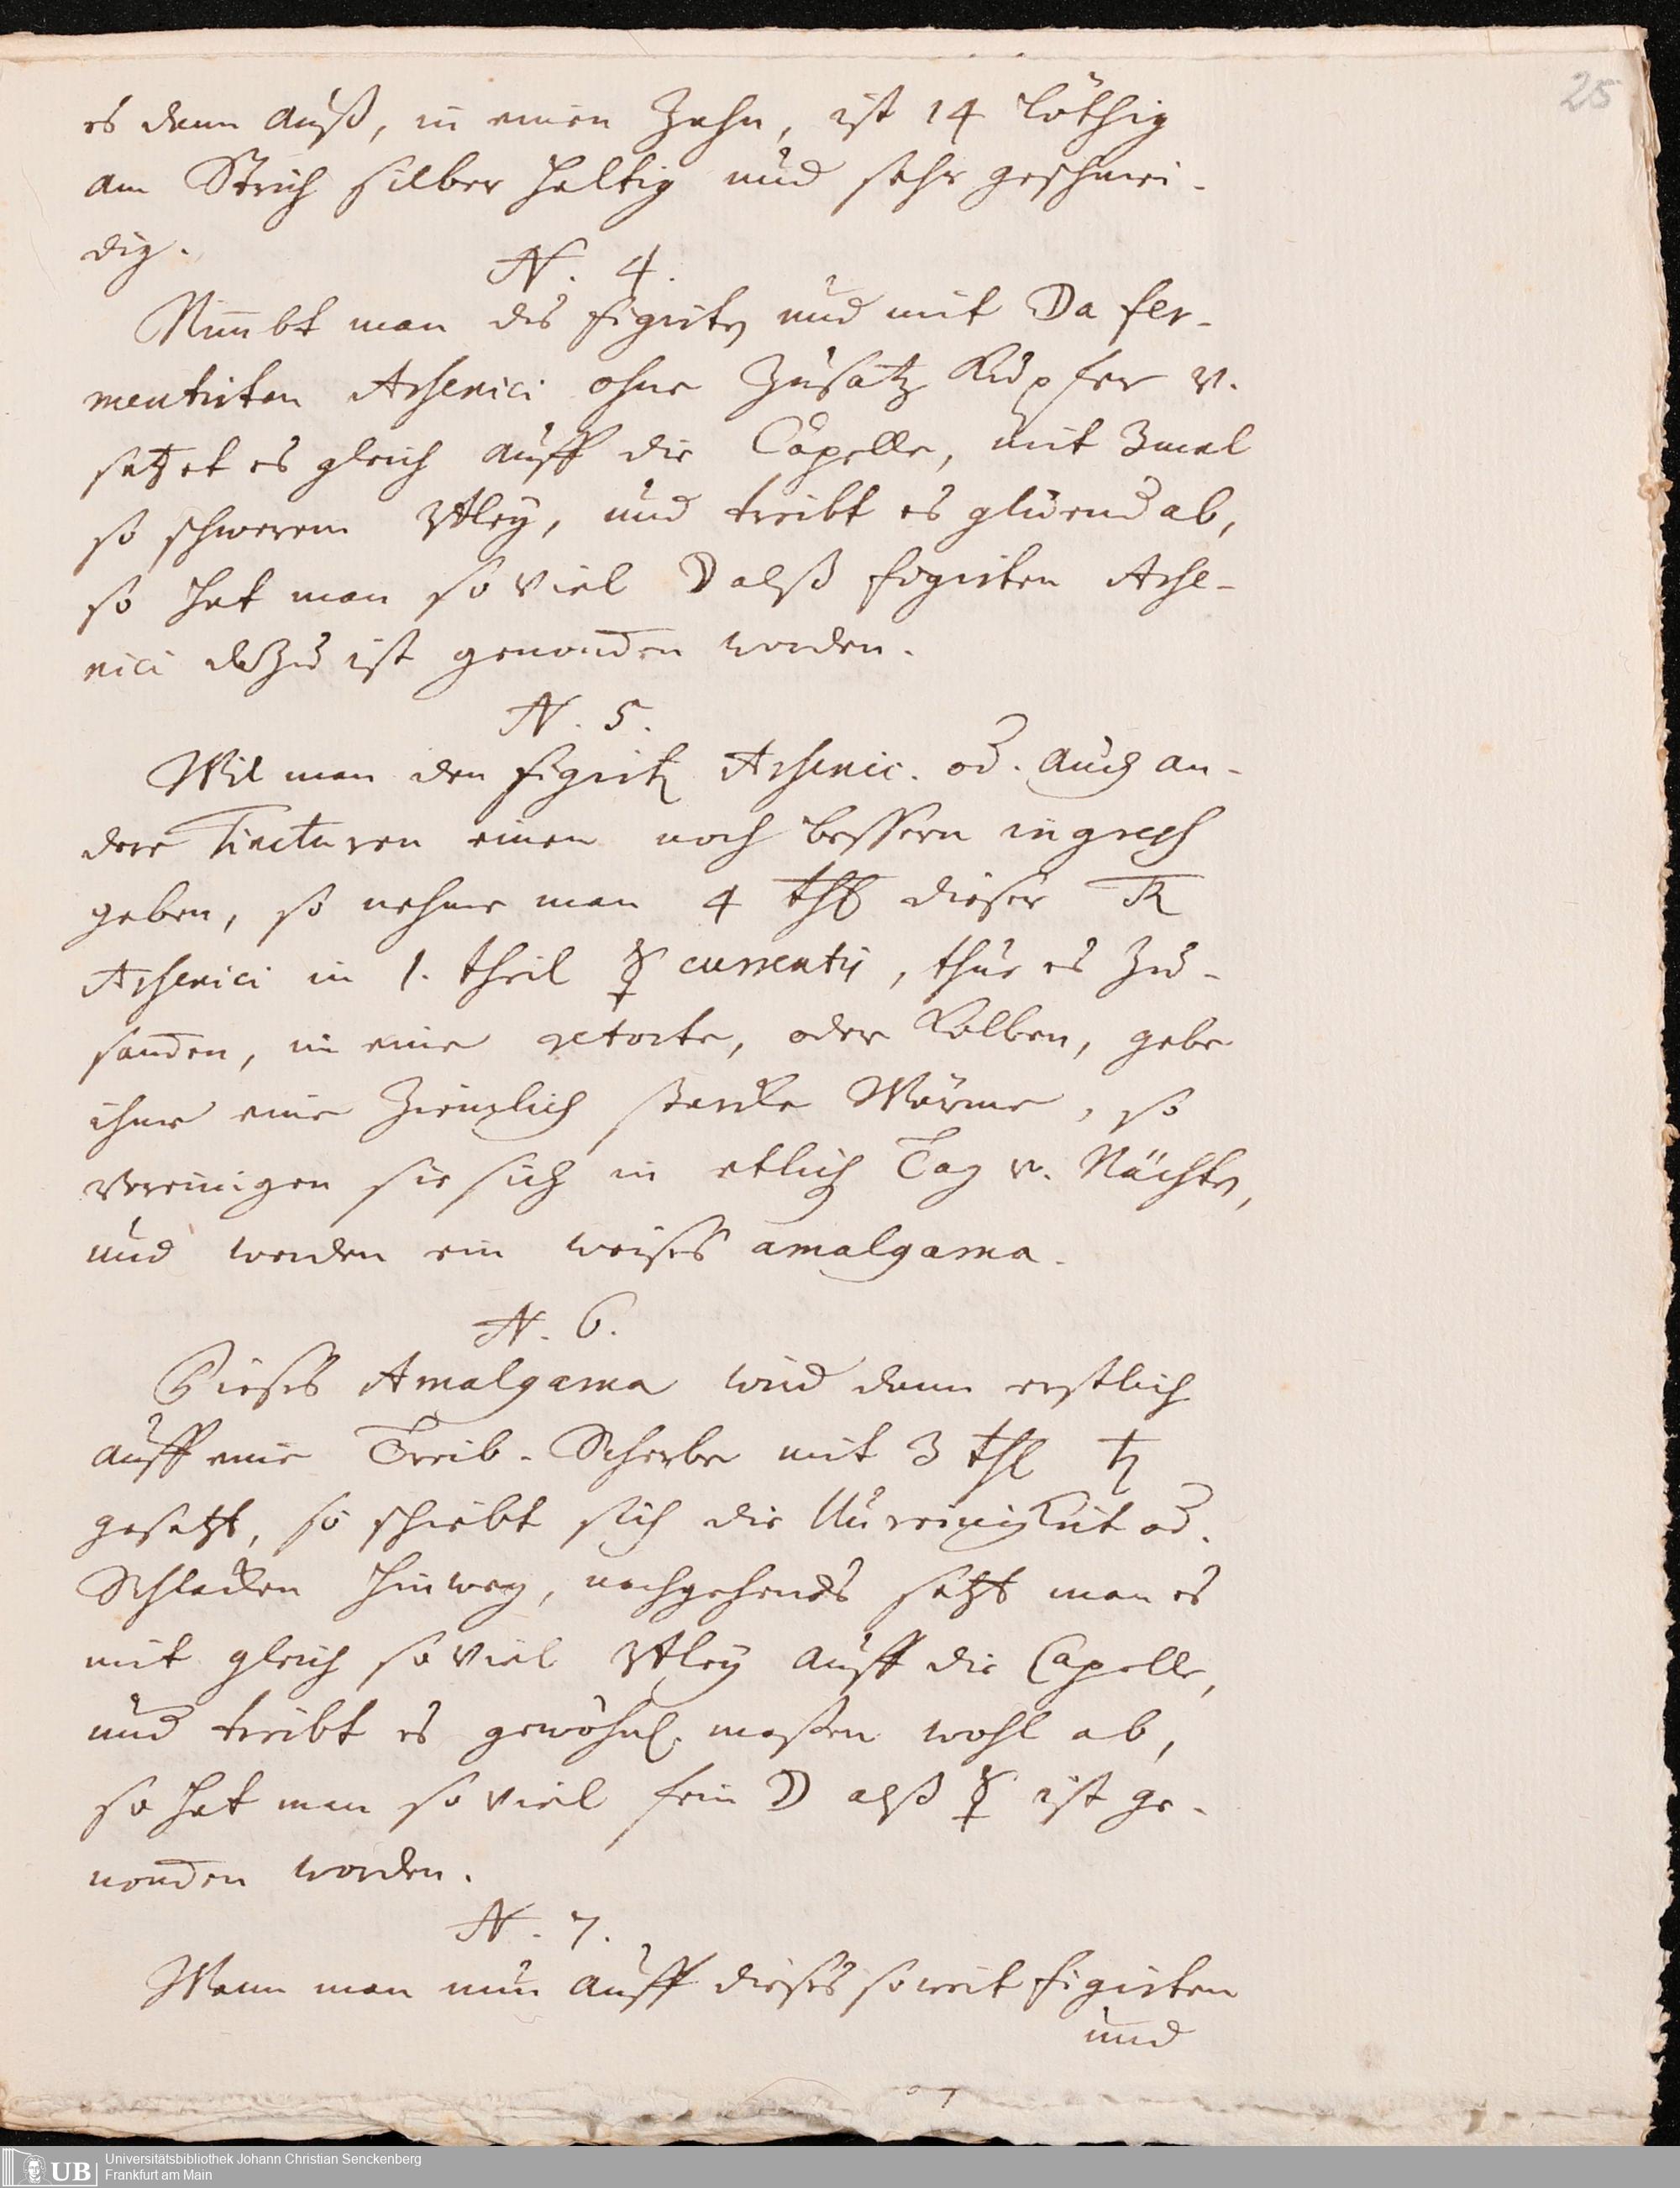 25
es dann auß, in einen Zahn, ist 14 löthig
am Strich silber haltig und sehr geschmei-
dig.
N. 4.
Nim̅bt man des figirtn und mit ☽a fer-
mentirten Arsenici ohne Zusatz Kupfer v.
setzet es gleich auff die Capelle, mit 3mal
so schwerem ♄bley, und treibt es glüend ab,
so hat man so viel ☽ alß figirten Arse-
nici dazu ist genom̅en worden.
N. 5.
Wil man den figirtn Arsenic. od. auch an-
dere Tincturen einen noch bessern ingress
geben, so nehme man 4 thl dieser
Arsenici in 1. theil ☿ currentis, thue es zu-
sam̅en, in eine retorte, oder Kolben, gebe
ihme eine Ziemlich starcke Wärme, so
vereinigen sie sich in etlich Tag v. Nächtn,
und werden ein weises amalgama.
N. 6.
Dieses Amalgama wird dann erstlich
auff eine Treib-Scherbe mit 3 thl ♄
gesetzt, so schiebt sich die Unreinigkeit od.
Schlacken hinweg, nachgehends setzt man es
mit gleich so viel ♄bley auff die Capelle,
und treibt es gewöhnl. maßen wohl ab,
so hat man so viel fein ☽ alß ☿ ist ge-
nom̅en worden.
N. 7.
Wann man nun auff dieses so weit figirten
und
UB Universitätsbibliothek Johann Christian Senckenberg
Frankfurt am Main